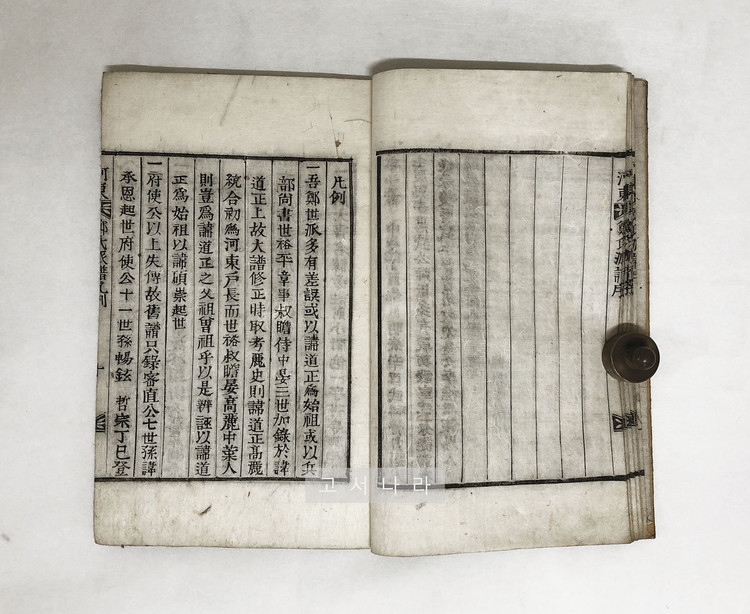 河東 鄭氏派譜序
凡例
一吾鄭世派多有差誤或以諱道正為始祖或以兵
部尚書世裕平章事叔瞻侍中晏三世加錄於諱
道正上故大譜修正時取考麗史則諱道正高麗
統合初為河東戶長而世裕叔瞻晏高麗中葉人
則豈為諱道正之父祖曾祖乎以是辨誣以諱道
正為始祖以諱碩崇起世
一府使公以上失傳故舊譜只錄審直公七世孫諱
承恩起世府使公十一世孫暢鉉 哲宗丁巳登
河東 鄭氏派譜凡例
고서나라